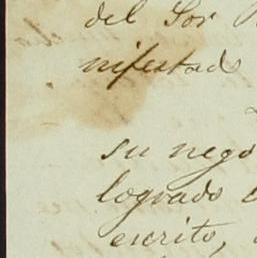 del Sor
nifestad
su nego
logrado
escrito,